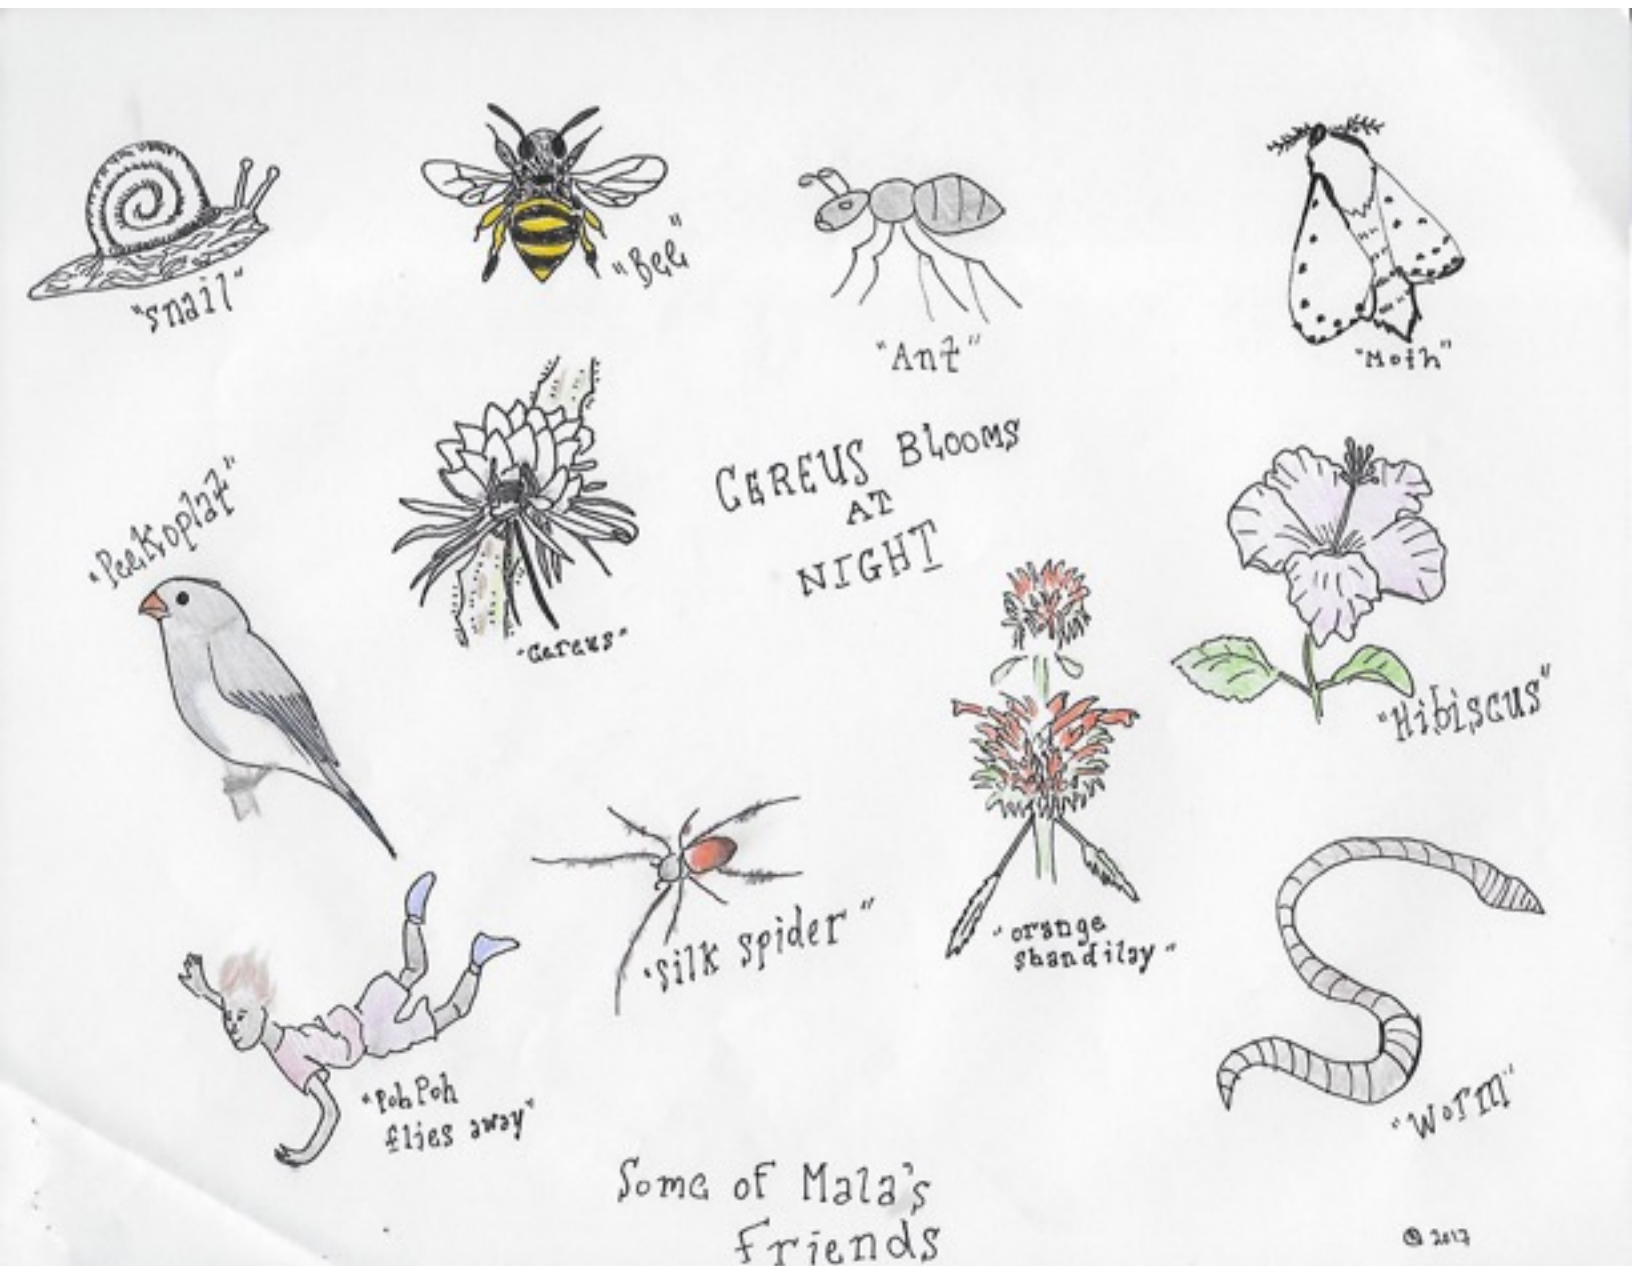 "Snail"
"Bee"
"Ant"
"Moth"
"Peekoplat"
CEREUS BLOOMS
AT
NIGHT
"Cereus"
"Hibiscus"
"Silk spider"
"orange
shandilay"
"PohPoh
flies away"
"Worm"
Some of Mala's
Friends
2017